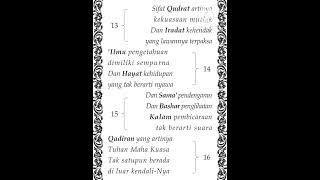 Sifat Qudrat artinya
kekuasaan mutlak
13
Dan Iradat kehendak
yang lawannya terpaksa
'Ilmu pengetahuan
dimiliki sempurna
14
Dan Hayat kehidupan
yang tak berarti nyawa
Dan Sama' pendengaran
Dan Bashar penglihatan
15
Kalam pembicaraan
tak berarti suara
Qadiran yang artinya
Tuhan Maha Kuasa
16
Tak satupun berada
di luar kendali-Nya